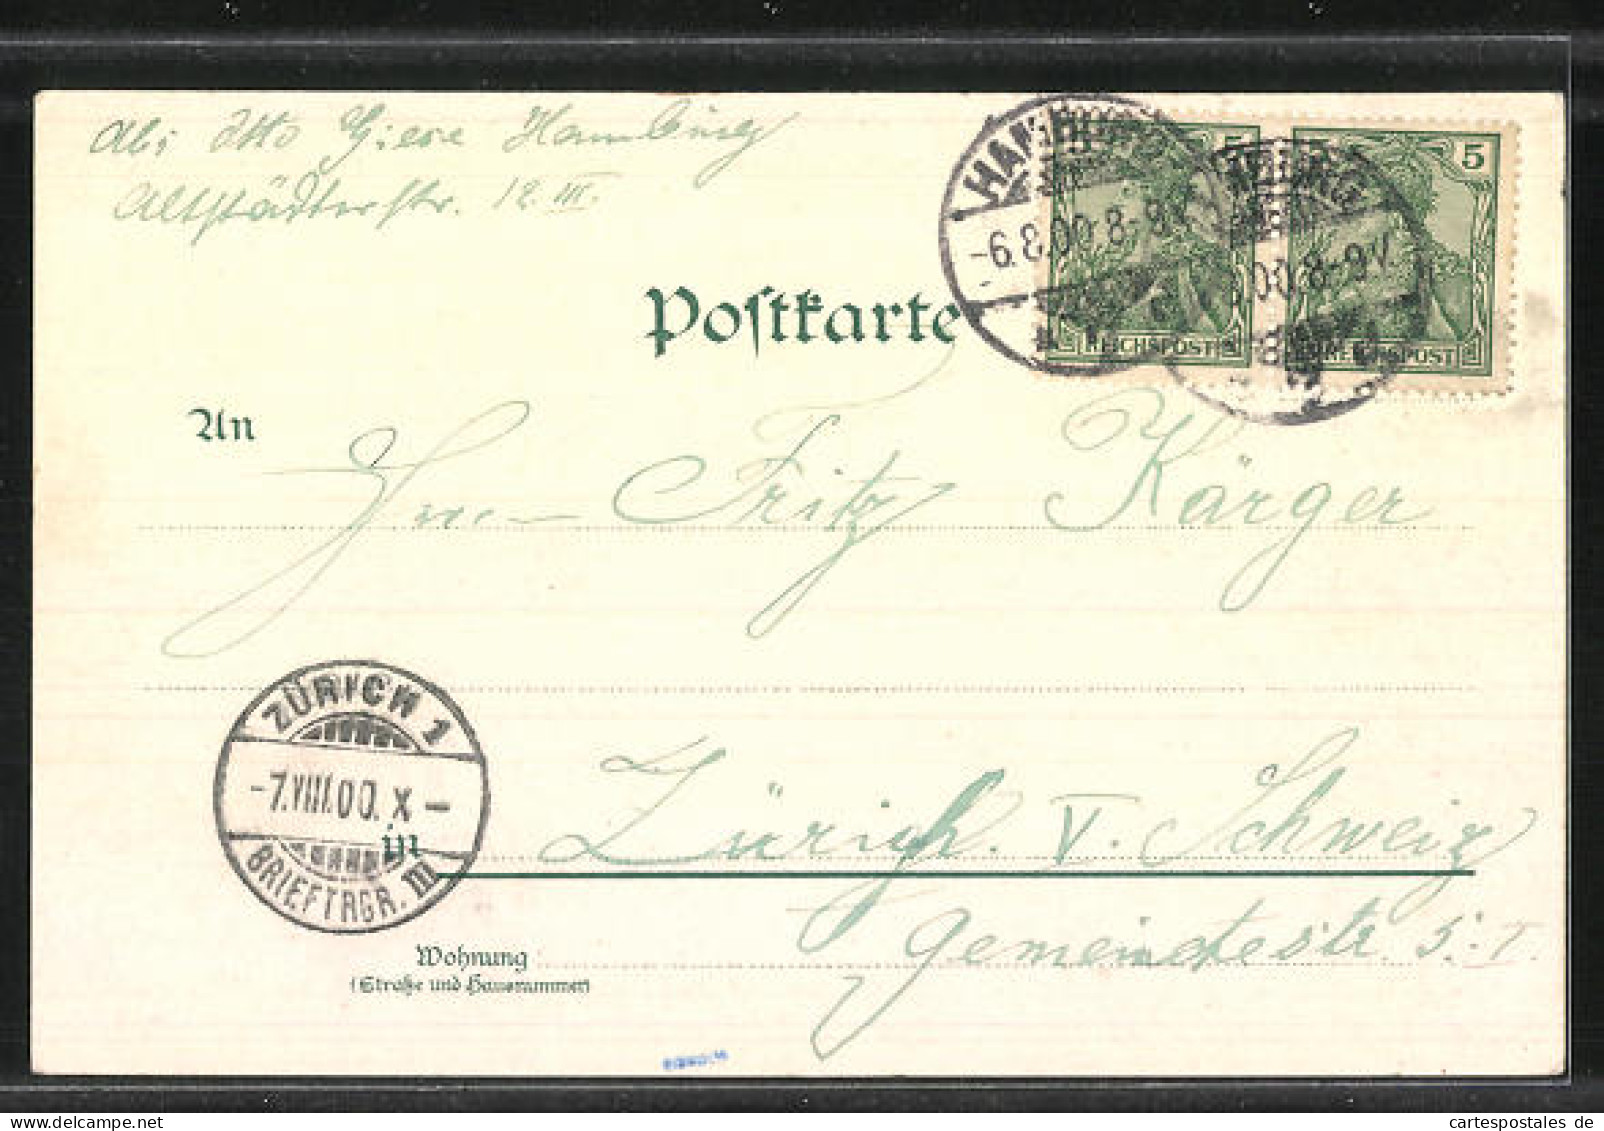 Abs Otto Giese Hamburg
Altstädterstr. 12. III.
HAMBURG
-6.8.00.8-9V
5
REICHSPOST
HAMBURG
00.8-9V
5
REICHSPOST
Postkarte
An
Herrn Fritz Kärger
ZÜRICH 1
-7.VIII.00. X-
BRIEFTRGR. III
in Zürich. V. Schweiz
Gemeindestr. 5. I.
Wohnung
(Straße und Hausnummer)
cartespostales de